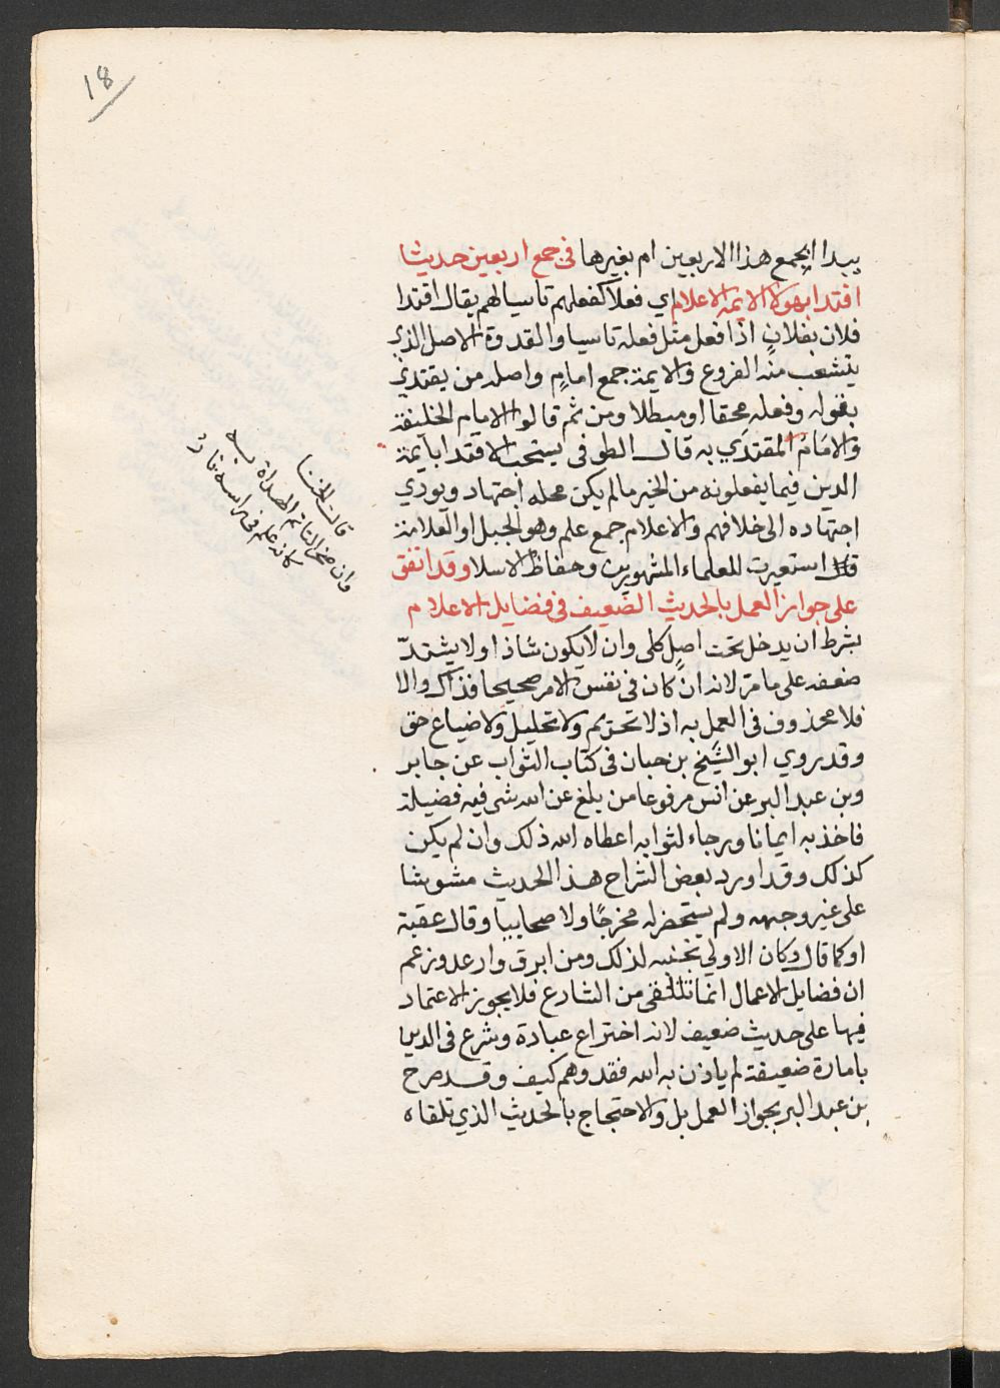 18
يبدا ايجمع هذا الاربعين ام بغيرها في جمع اربعين حديثا
اقتدا بهولا الايمة الاعلام اي فعلا كفعلهم تاسيا لهم يقال اقتدا
فلان بفلان اذا فعل مثل فعله تاسيا والقدوة الاصل الذي
يتشعب منه الفروع والايمة جمع امام واصله من يقتدي
بقوله وفعله محقا او مبطلا ومن ثم قالوا الامام الخليفة
والامام المقتدي به قال الطوفي يستحب الاقتدا بايمة
الدين فيما يفعلونه من الخير مالم يكن محله اجتهاد ويودي
اجتهاده الى خلافهم والاعلام جمع علم وهو الجبل او العلامة
استعيرت للعلماء المشهورين وحفاظ الاسلا وقد اتفق
على جواز العمل بالحديث الضعيف في فضايل الاعلام
بشرط ان يدخل تحت اصل كلي وان لا يكون شاذا ولا يشتد
ضعفه على ما مر لانه ان كان في نفس الامر صحيحا فذاك والا
فلا محذوف في العمل به اذ لا تحريم ولا تحليل ولا ضياع حق
وقد روي ابو الشيخ بن حبان في كتاب الثواب عن جابر
وبن عبد البر عن انس مرفوعا من بلغ عن الله شي فيه فضيلة
فاخذ به ايمانا ورجاء لثوابه اعطاه الله ذلك وان لم يكن
كذلك وقد اورد بعض الشراح هذا الحديث مشوشا
على غير وجهه ولم يستحضر له مخرجا ولا صحابيا وقال عقبة
او كما قال وكان الاولي تجنبه لذلك ومن ابرق وارعد وزعم
ان فضايل الاعمال انما تتلقى من الشارع فلا يجوز الاعتماد
فيها على حديث ضعيف لانه اختراع عبادة وشرع في الدين
بامارة ضعيفة لم ياذن به الله فقد وهم كيف وقد صرح
بن عبد البر بجواز العمل بل والاحتجاج بالحديث الذي تلقاه
قالت الخنسا
وان صخرا لتاتم الهداة به
كانه علم في راسه نار